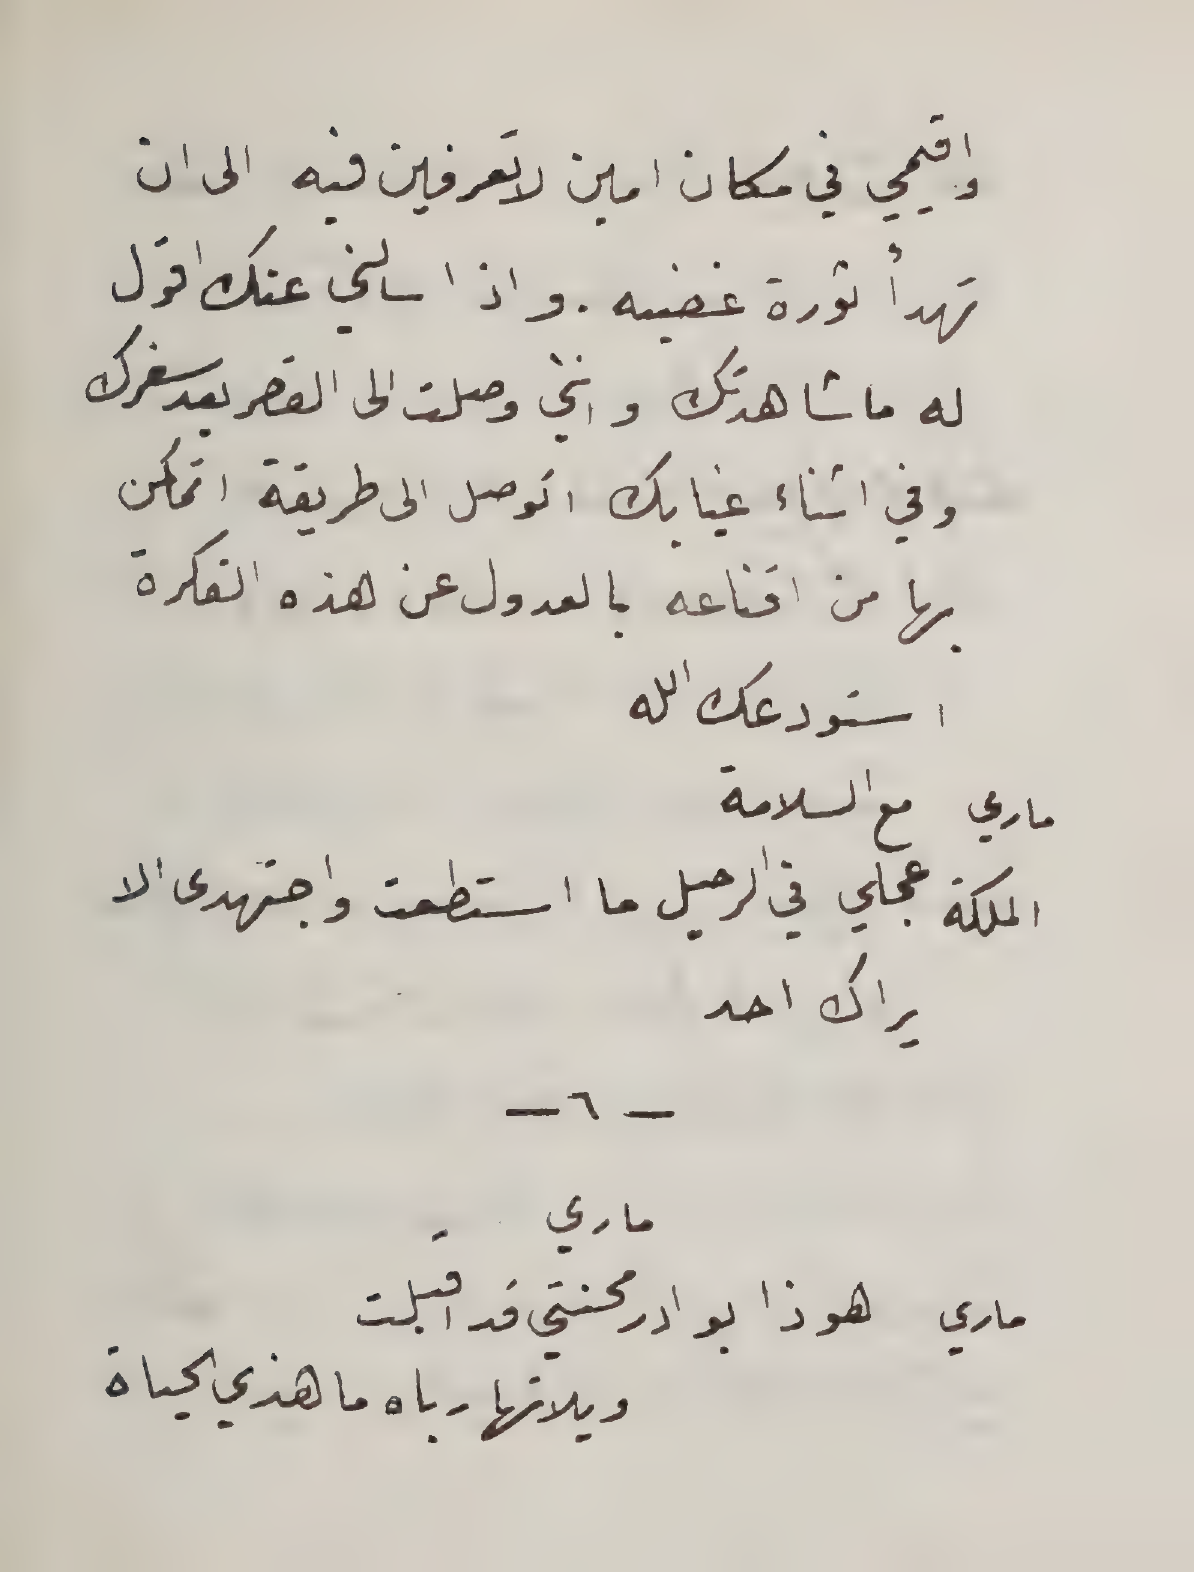 واقيمي في مكان امين لا تعرفين فيه الى ان
تهدأ ثورة غضبه . واذا سالني عنك اقول
له ما شاهدتك وانني وصلت الى القصر بعد سفرك
وفي اثناء غيابك اتوصل الى طريقة اتمكن
بها من اقناعه بالعدول عن هذه الفكرة
استودعك الله
ماري مع السلامة
الملكة عجلي في الرحيل ما استطعت واجتهدى الا
يراك احد
— ٦ —
ماري
ماري هوذا بوادر محنتي قد اقبلت
ويلاتها رباه ما هذي الحياة